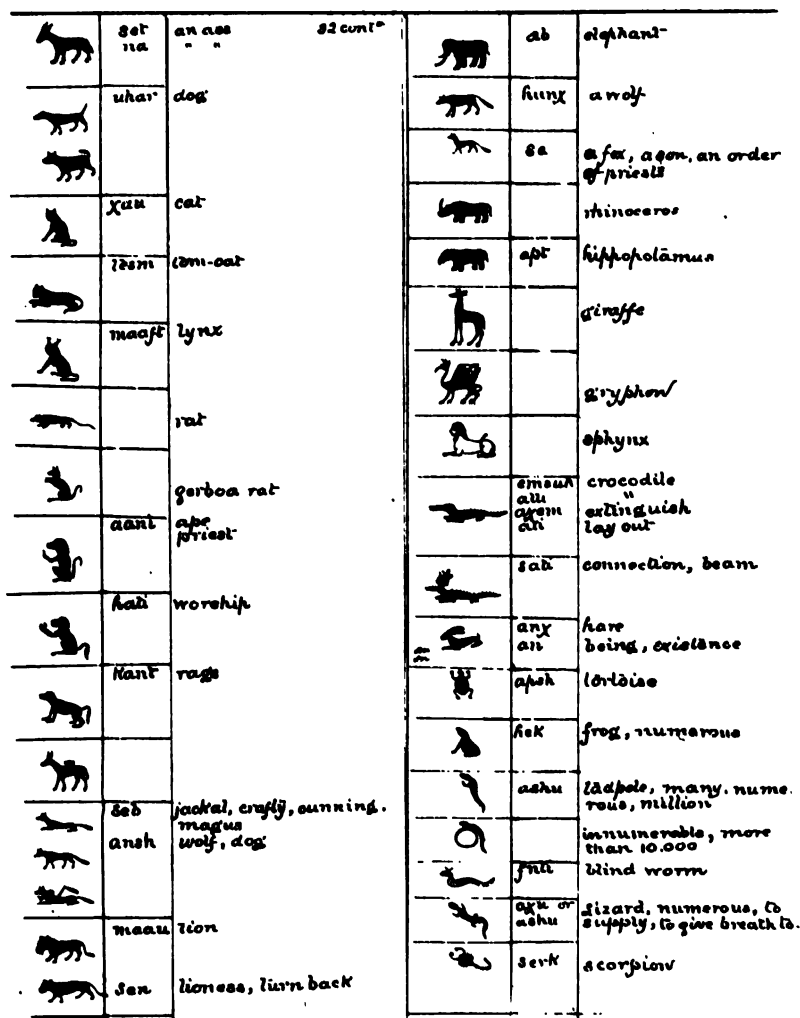 set an ass 32 contd
na " "
uhar dog
χau cat
tesm tom-cat
maaft lynx
rat
gerboa rat
aani ape
priest
hati worship
Kant rage
seb jackal, crafty, cunning.
magus
ansh wolf, dog
maau lion
sen lioness, turn back
ab elephant
hunχ a wolf
sa a fox, a son, an order
of priests
rhinoceros
apt hippopotamus
giraffe
gryphon
sphynx
emsuh crocodile
"
aχem extinguish
ati lay out
sati connection, beam
anχ hare
an being, existence
apsh tortoise
hek frog, numerous
ashu tadpole, many. nume
rous, million
innumerable, more
than 10.000
fnti blind worm
aχu or sizard, numerous, to
ashu supply, to give breath to.
serk scorpion